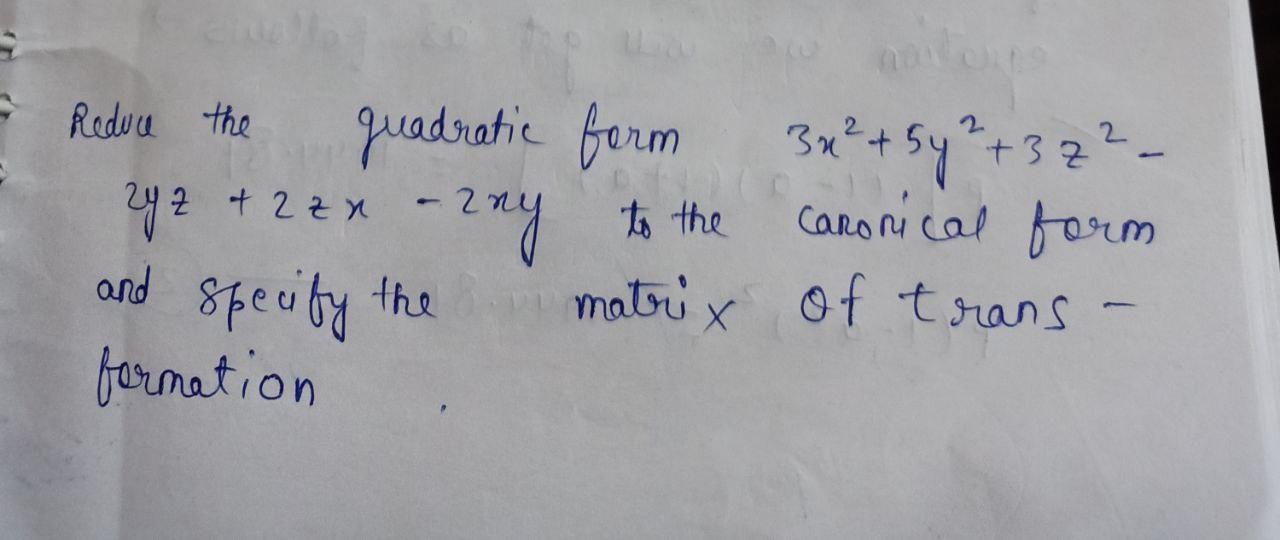 Reduce the quadratic form 3x²+5y²+3z²-
2yz + 2zx - 2xy to the canonical form
and specify the matrix of trans -
formation .